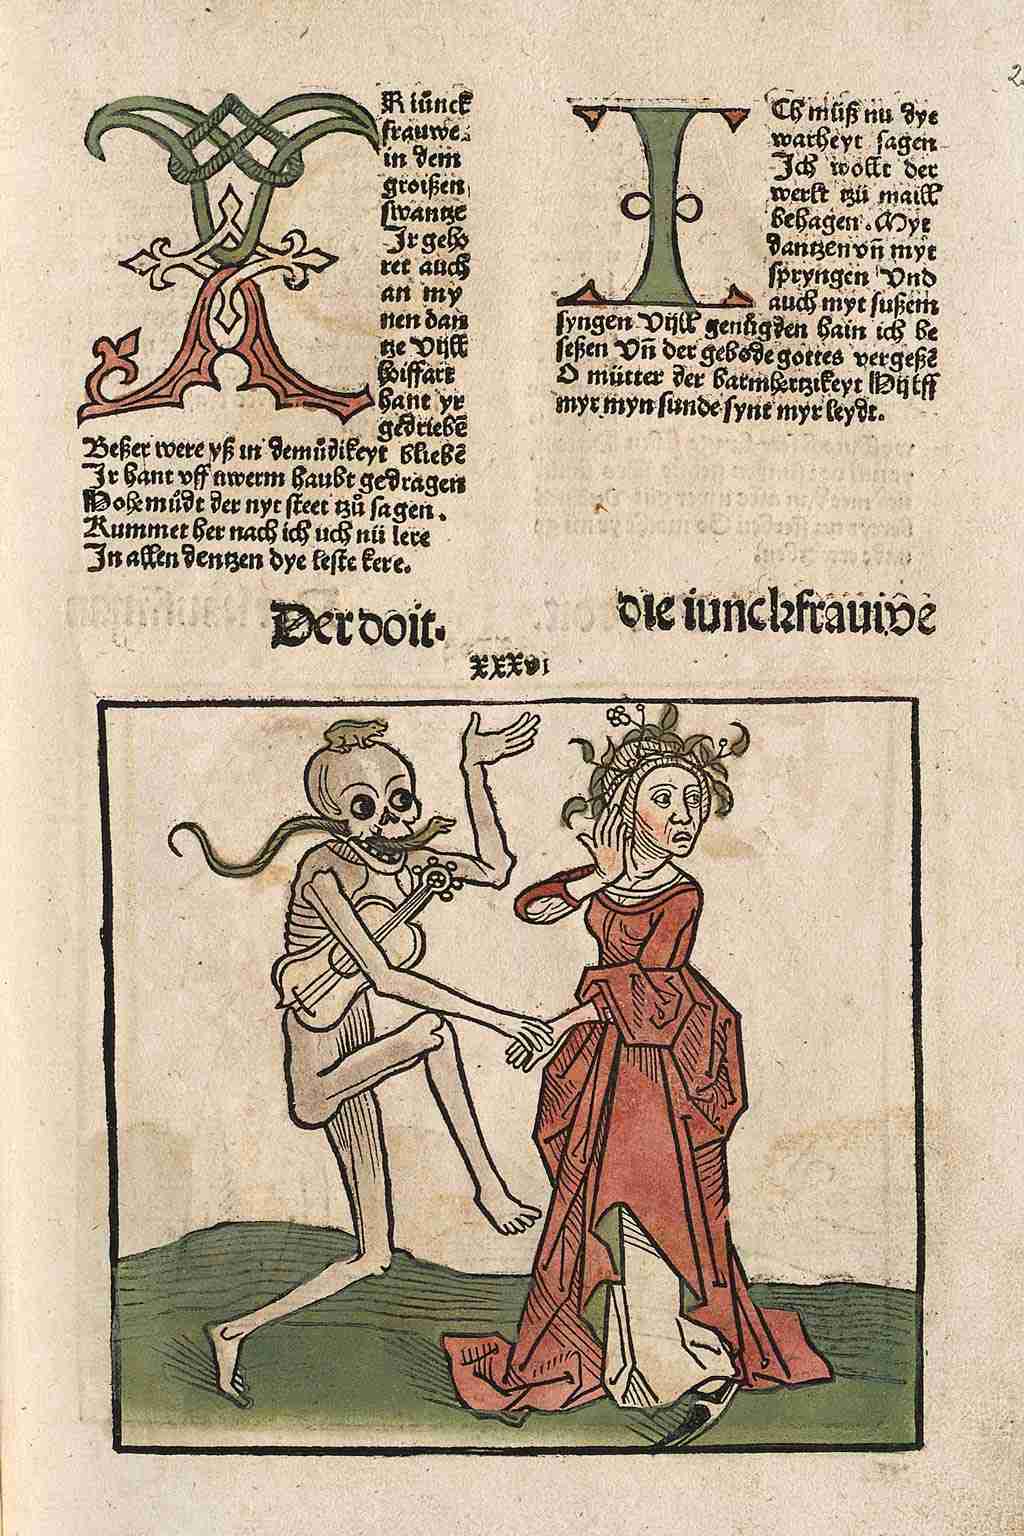 IR iũnck
frauwe
in dem
groißen
swantze
Ir geho
ret auch
an my
nen dan
tze Vijll
hoiffart
hant yr
gedriebẽ
Beßer were yß in demůdikeyt bliebẽ
Ir hant vff uwerm haubt gedragen
Hohemůdt der nyt steet tzů sagen.
Kummet her nach ich uch nü lere
In allen dentzen dye leste kere.
ICh müß nu dye
warheyt sagen
Ich wollt der
werlt tzü maill
behagen. Myt
dantzen vñ myt
spryngen Vnd
auch myt sußem
syngen Vijll genůgden hain ich be
seßen Vñ der gebode gottes vergeßẽ
O mütter der barmhertzikeyt Hijlff
myr myn sunde synt myr leydt.
Der doit.
die iunckfrauwe
xxxvi
2